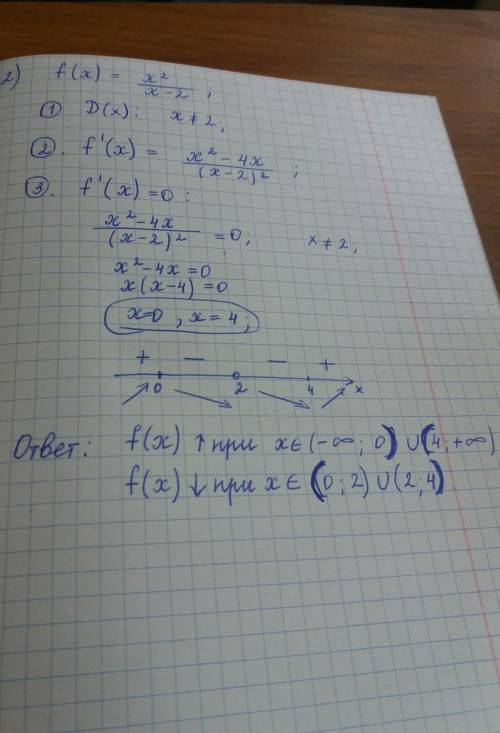 2) f(x) = x²/(x-2) ;
① D(x): x ≠ 2,
②. f'(x) = (x² - 4x)/(x-2)² ;
③. f'(x) = 0 :
(x² - 4x)/(x-2)² = 0; x ≠ 2;
x² - 4x = 0
x(x-4) = 0
x=0 , x = 4;
+ − − +
0 2 4 x
Ответ: f(x) ↑ при x ∈ (-∞; 0) ∪ (4; +∞)
f(x) ↓ при x ∈ (0; 2) ∪ (2; 4)